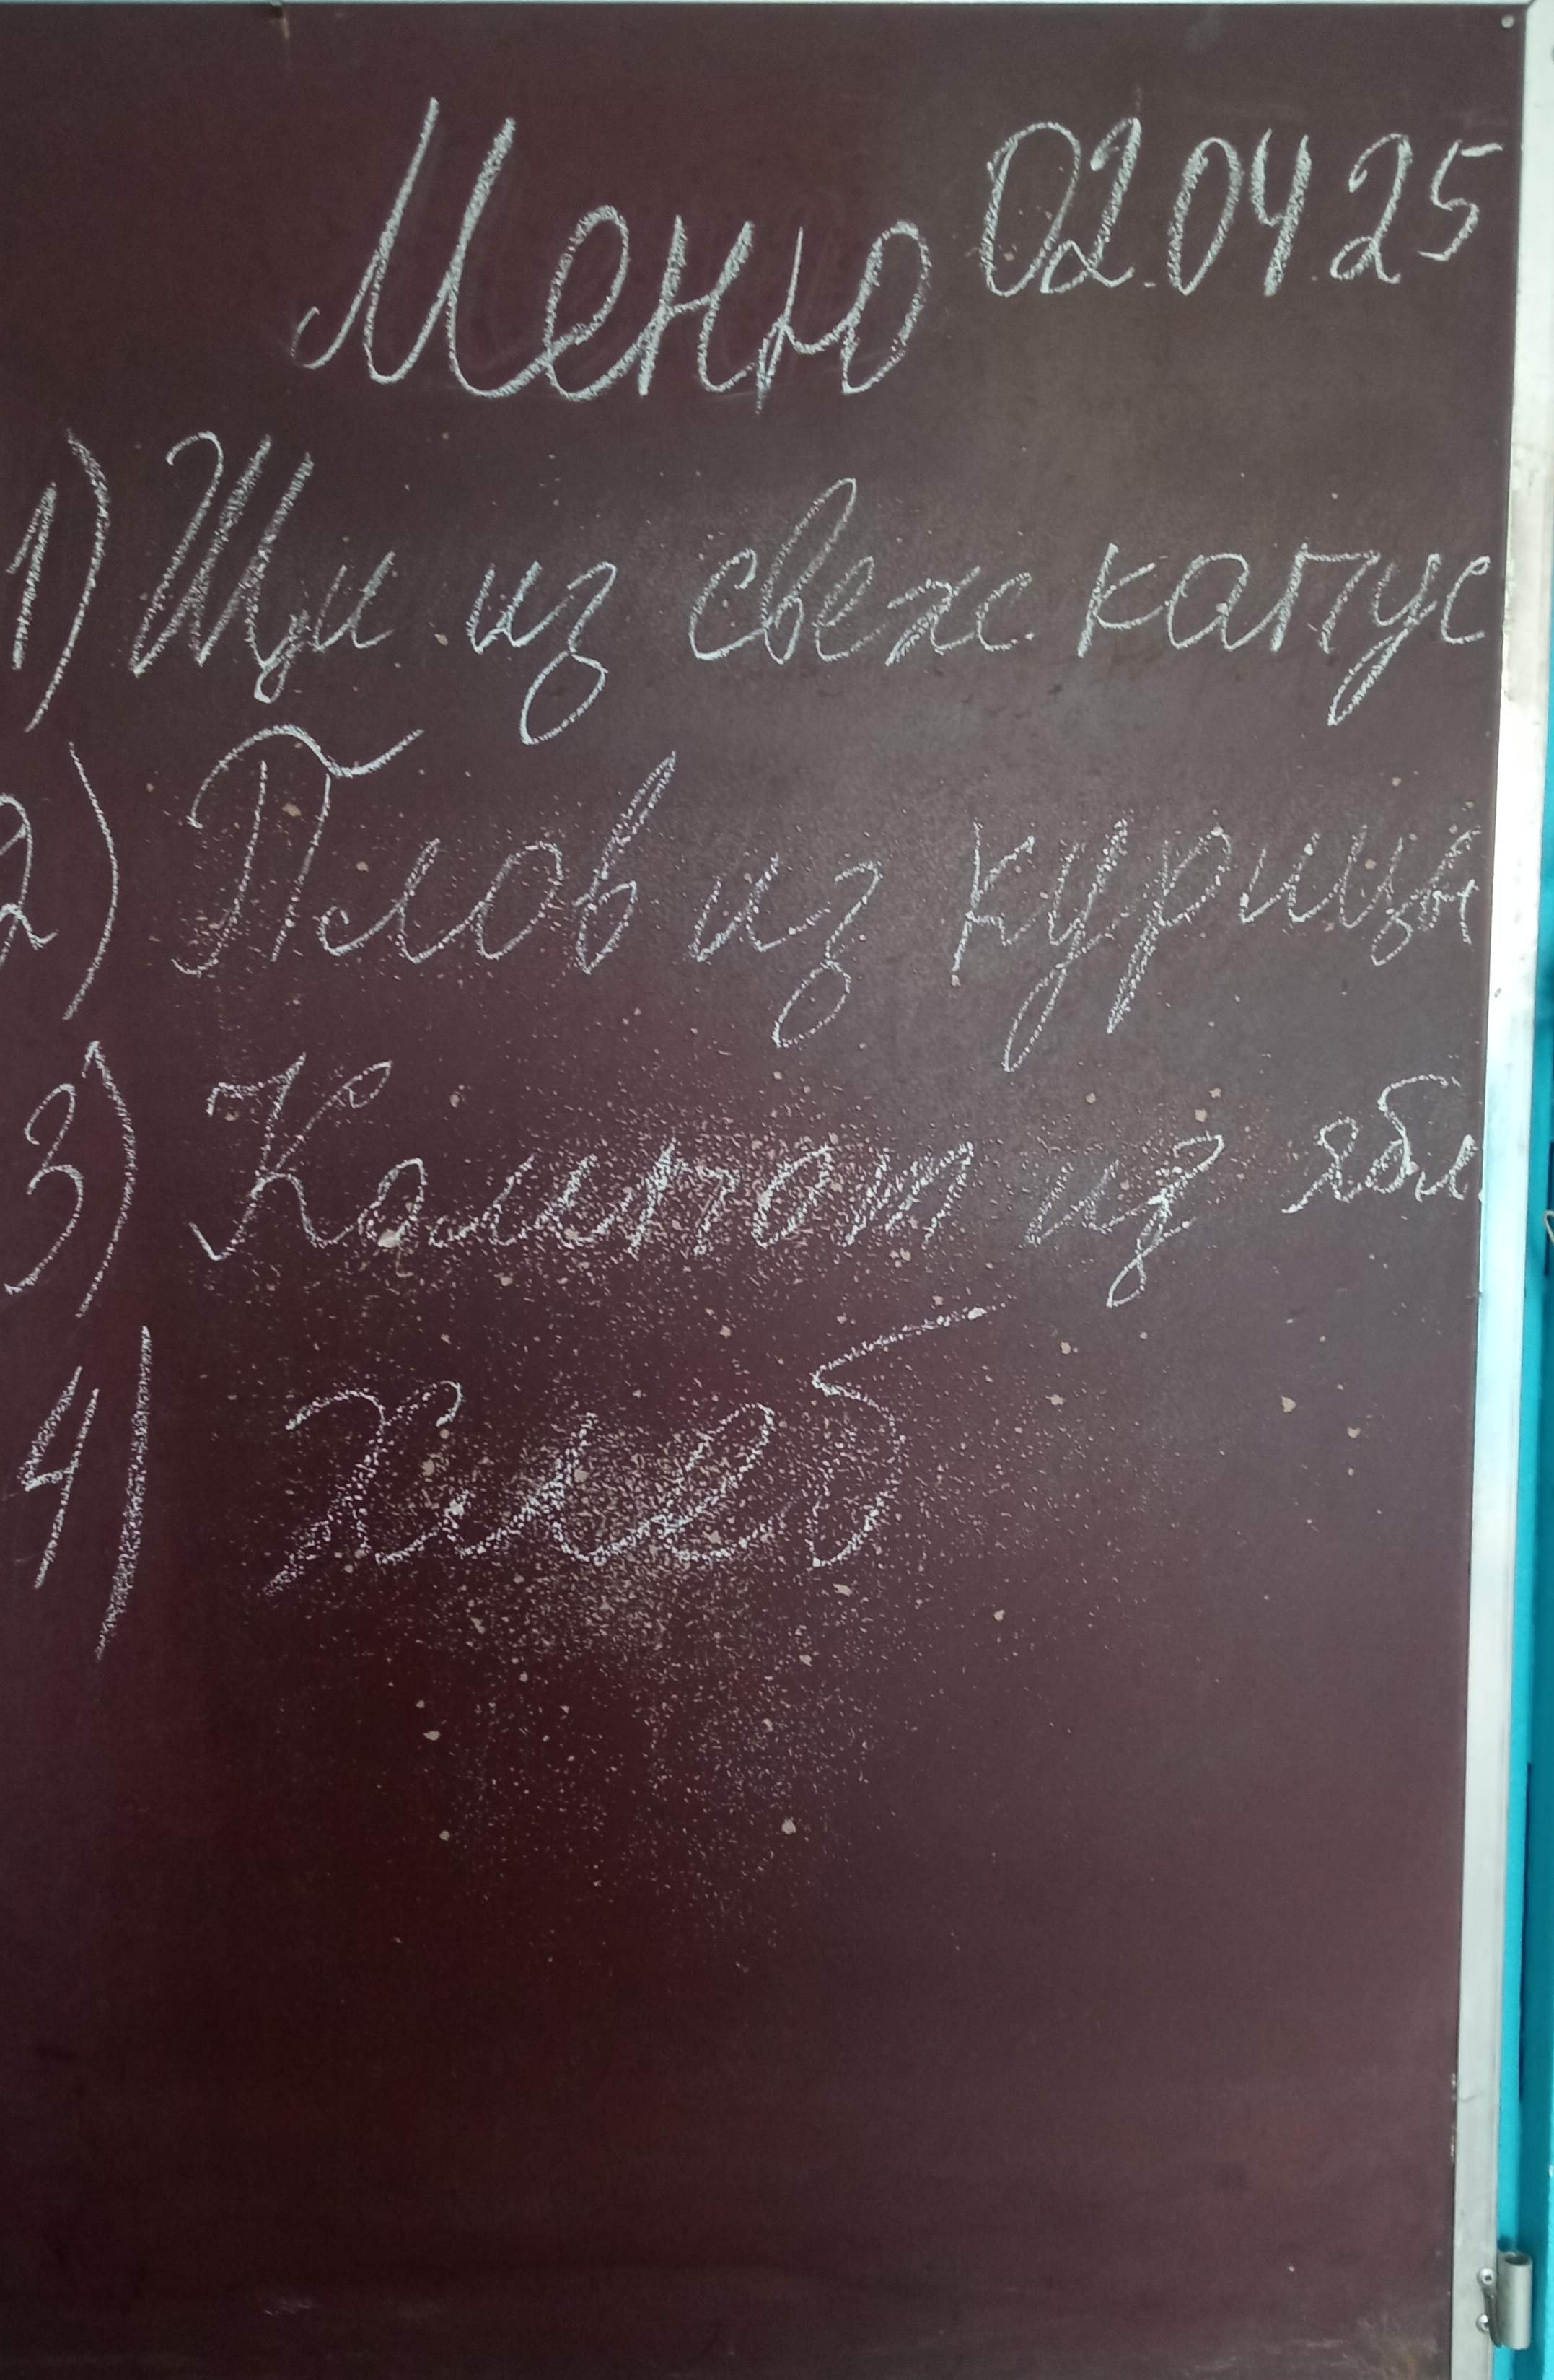 Меню 02.04.25
1) Щи из свеж капус
2) Плов из курицы
3) Компот из ябл.
4) Хлеб